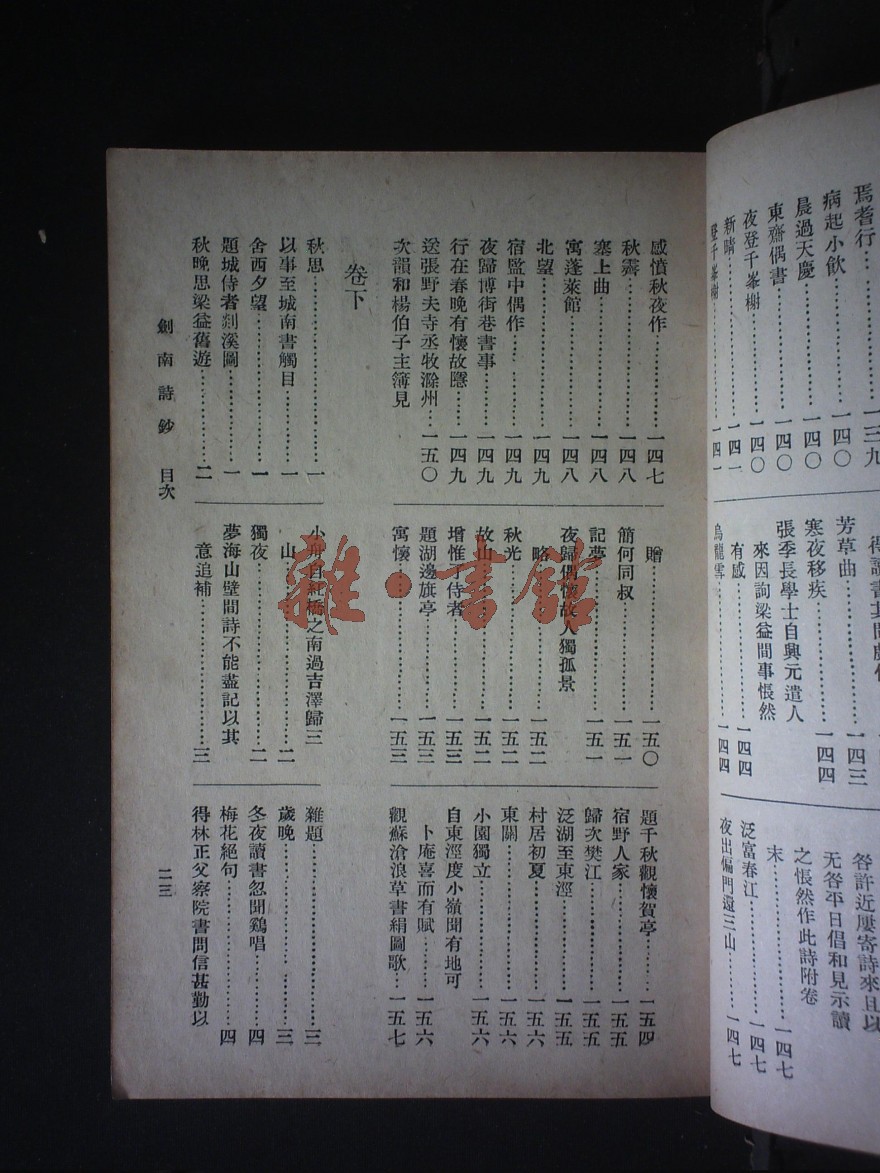 焉耆行……一三九
病起小飲……一四〇
晨過天慶……一四〇
東齋偶書……一四〇
夜登千峯榭……一四〇
新晴……一四一
登千峯榭……一四一
芳草曲……一四三
寒夜移疾……一四四
張季長學士自興元遣人
來因詢梁益間事悵然
有感……一四四
烏龍雪……一四四
咎許近屢寄詩來且以
无咎平日倡和見示讀
之悵然作此詩附卷
末……一四七
泛富春江……一四七
夜出偏門還三山……一四七
感憤秋夜作……一四七
秋霽……一四八
塞上曲……一四八
寓蓬萊館……一四八
北望……一四九
宿監中偶作……一四九
夜歸博街巷書事……一四九
行在春晚有懷故隱……一四九
送張野夫寺丞牧滁州……一五〇
次韻和楊伯子主簿見
贈……一五〇
簡何同叔……一五一
記夢……一五一
夜歸偶懷故人獨孤景
略……一五二
秋光……一五二
故山……一五二
增惟了侍者……一五三
題湖邊旗亭……一五三
寓懷……一五三
題千秋觀懷賀亭……一五四
宿野人家……一五五
歸次樊江……一五五
泛湖至東涇……一五五
村居初夏……一五六
東關……一五六
小園獨立……一五六
自東涇度小嶺聞有地可
卜庵喜而有賦……一五六
觀蘇滄浪草書絹圖歌……一五七
卷下
秋思……一
以事至城南書觸目……一
舍西夕望……一
題城侍者剡溪圖……一
秋晚思梁益舊遊……二
小舟自紅橋之南過吉澤歸三
山……二
獨夜……二
夢海山壁間詩不能盡記以其
意追補……三
雜題……三
歲晚……三
冬夜讀書忽聞鷄唱……四
梅花絕句……四
得林正父察院書問信甚勤以
劍南詩鈔 目次
二三
雜·書館